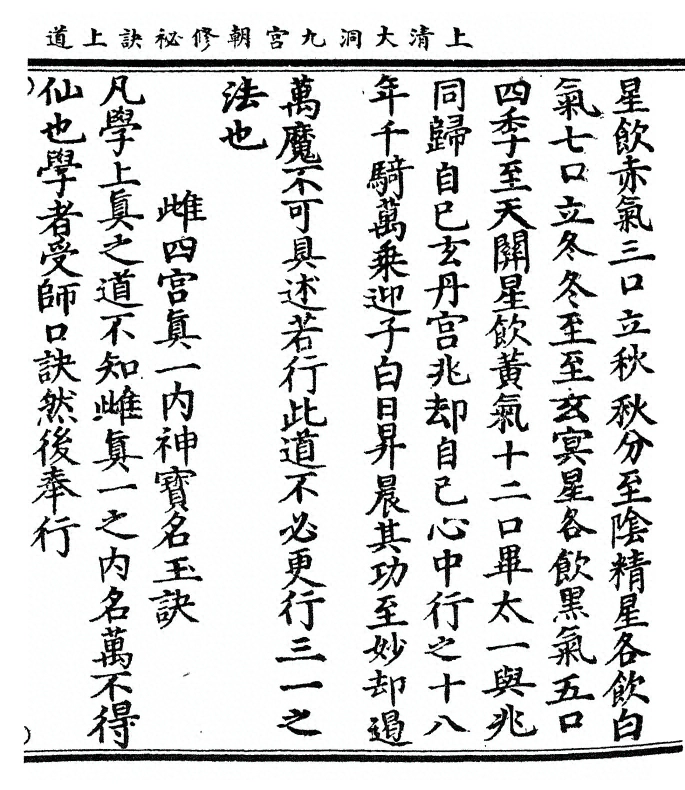 上清大洞九宮朝修祕訣上道
星飲赤氣三口立秋秋分至陰精星各飲白
氣七口立冬冬至至玄冥星各飲黑氣五口
四季至天關星飲黃氣十二口畢太一與兆
同歸自己玄丹宮兆却自己心中行之十八
年千騎萬乗迎子白日昇晨其功至妙却遏
萬魔不可具述若行此道不必更行三一之
法也
雌四宮眞一内神寳名玉訣
凡學上眞之道不知雌眞一之内名萬不得
仙也學者受師口訣然後奉行